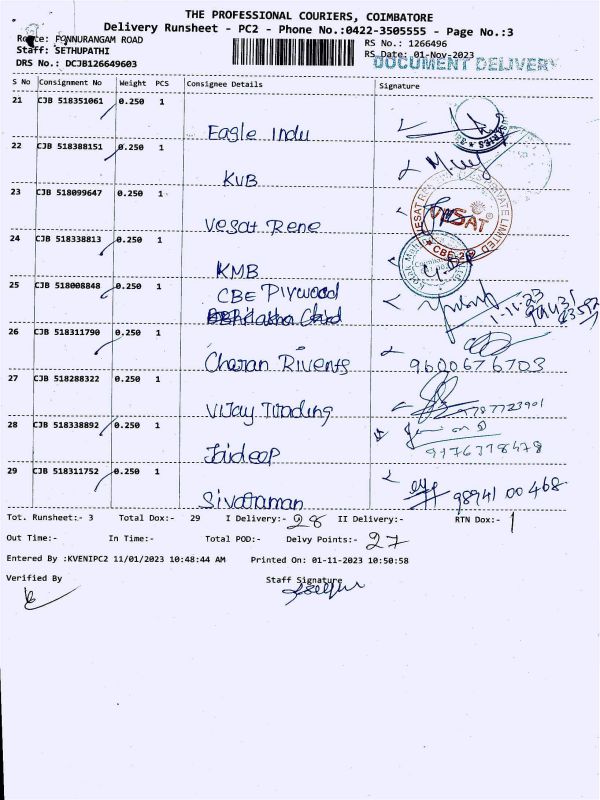 THE PROFESSIONAL COURIERS, COIMBATORE
Delivery Runsheet - PC2 - Phone No.:0422-3505555 - Page No.:3
PONNURANGAM ROAD
RS No.: 1266496
Staff: SETHUPATHI
RS Date: 01-Nov-2023
DOCUMENT DELIVERY
DRS No.: DCJB126649603
S No Consignment No Weight PCS Consignee Details Signature
21 CJB 518351061 0.250 1
Eagle Indu
22 CJB 518388151 0.250 1
KVB
23 CJB 518099647 0.250 1
Vesat Rene
VESAT
CBE
24 CJB 518338813 0.250 1
KMB
25 CJB 518008848 0.250 1
CBE Plywood
1-11-23
26 CJB 518311790 0.250 1
Charan Rivents
9600676703
27 CJB 518288322 0.250 1
Vijay Trading
9787723901
28 CJB 518338892 0.250 1
Jaideep
29 CJB 518311752 0.250 1
Sivaraman
98941 00 468
Tot. Runsheet:- 3 Total Dox:- 29 I Delivery:- 28 II Delivery:- RTN Dox:- 1
Out Time:- In Time:- Total POD:- Delvy Points:- 27
Entered By :KVENIPC2 11/01/2023 10:48:44 AM Printed On: 01-11-2023 10:50:58
Verified By Staff Signature